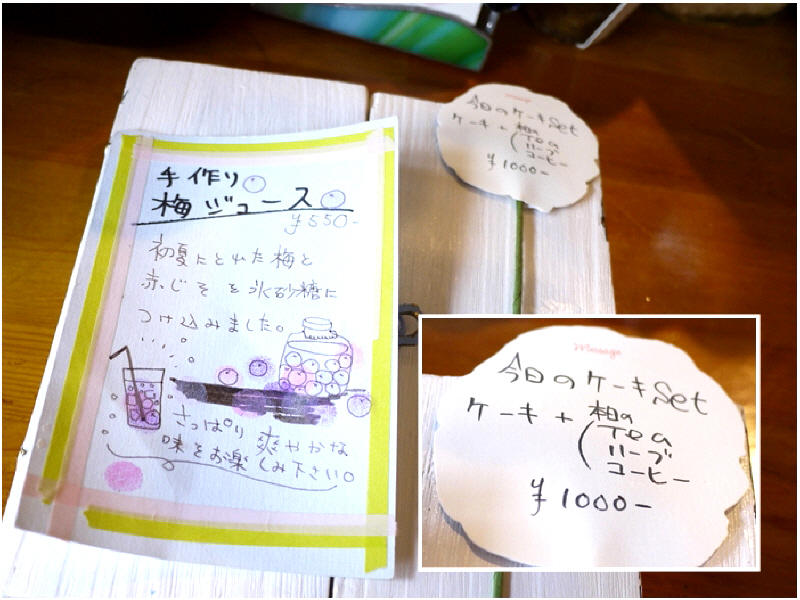 手作り
梅ジュース
¥550-
初夏にとれた梅と
赤じそを氷砂糖に
つけ込みました。
さっぱり爽やかな
味をお楽しみ下さい。
今日のケーキSet
ケーキ+
Tea
ハーブ
コーヒー
¥1000-
Message
今日のケーキSet
ケーキ+
Tea
ハーブ
コーヒー
¥1000-